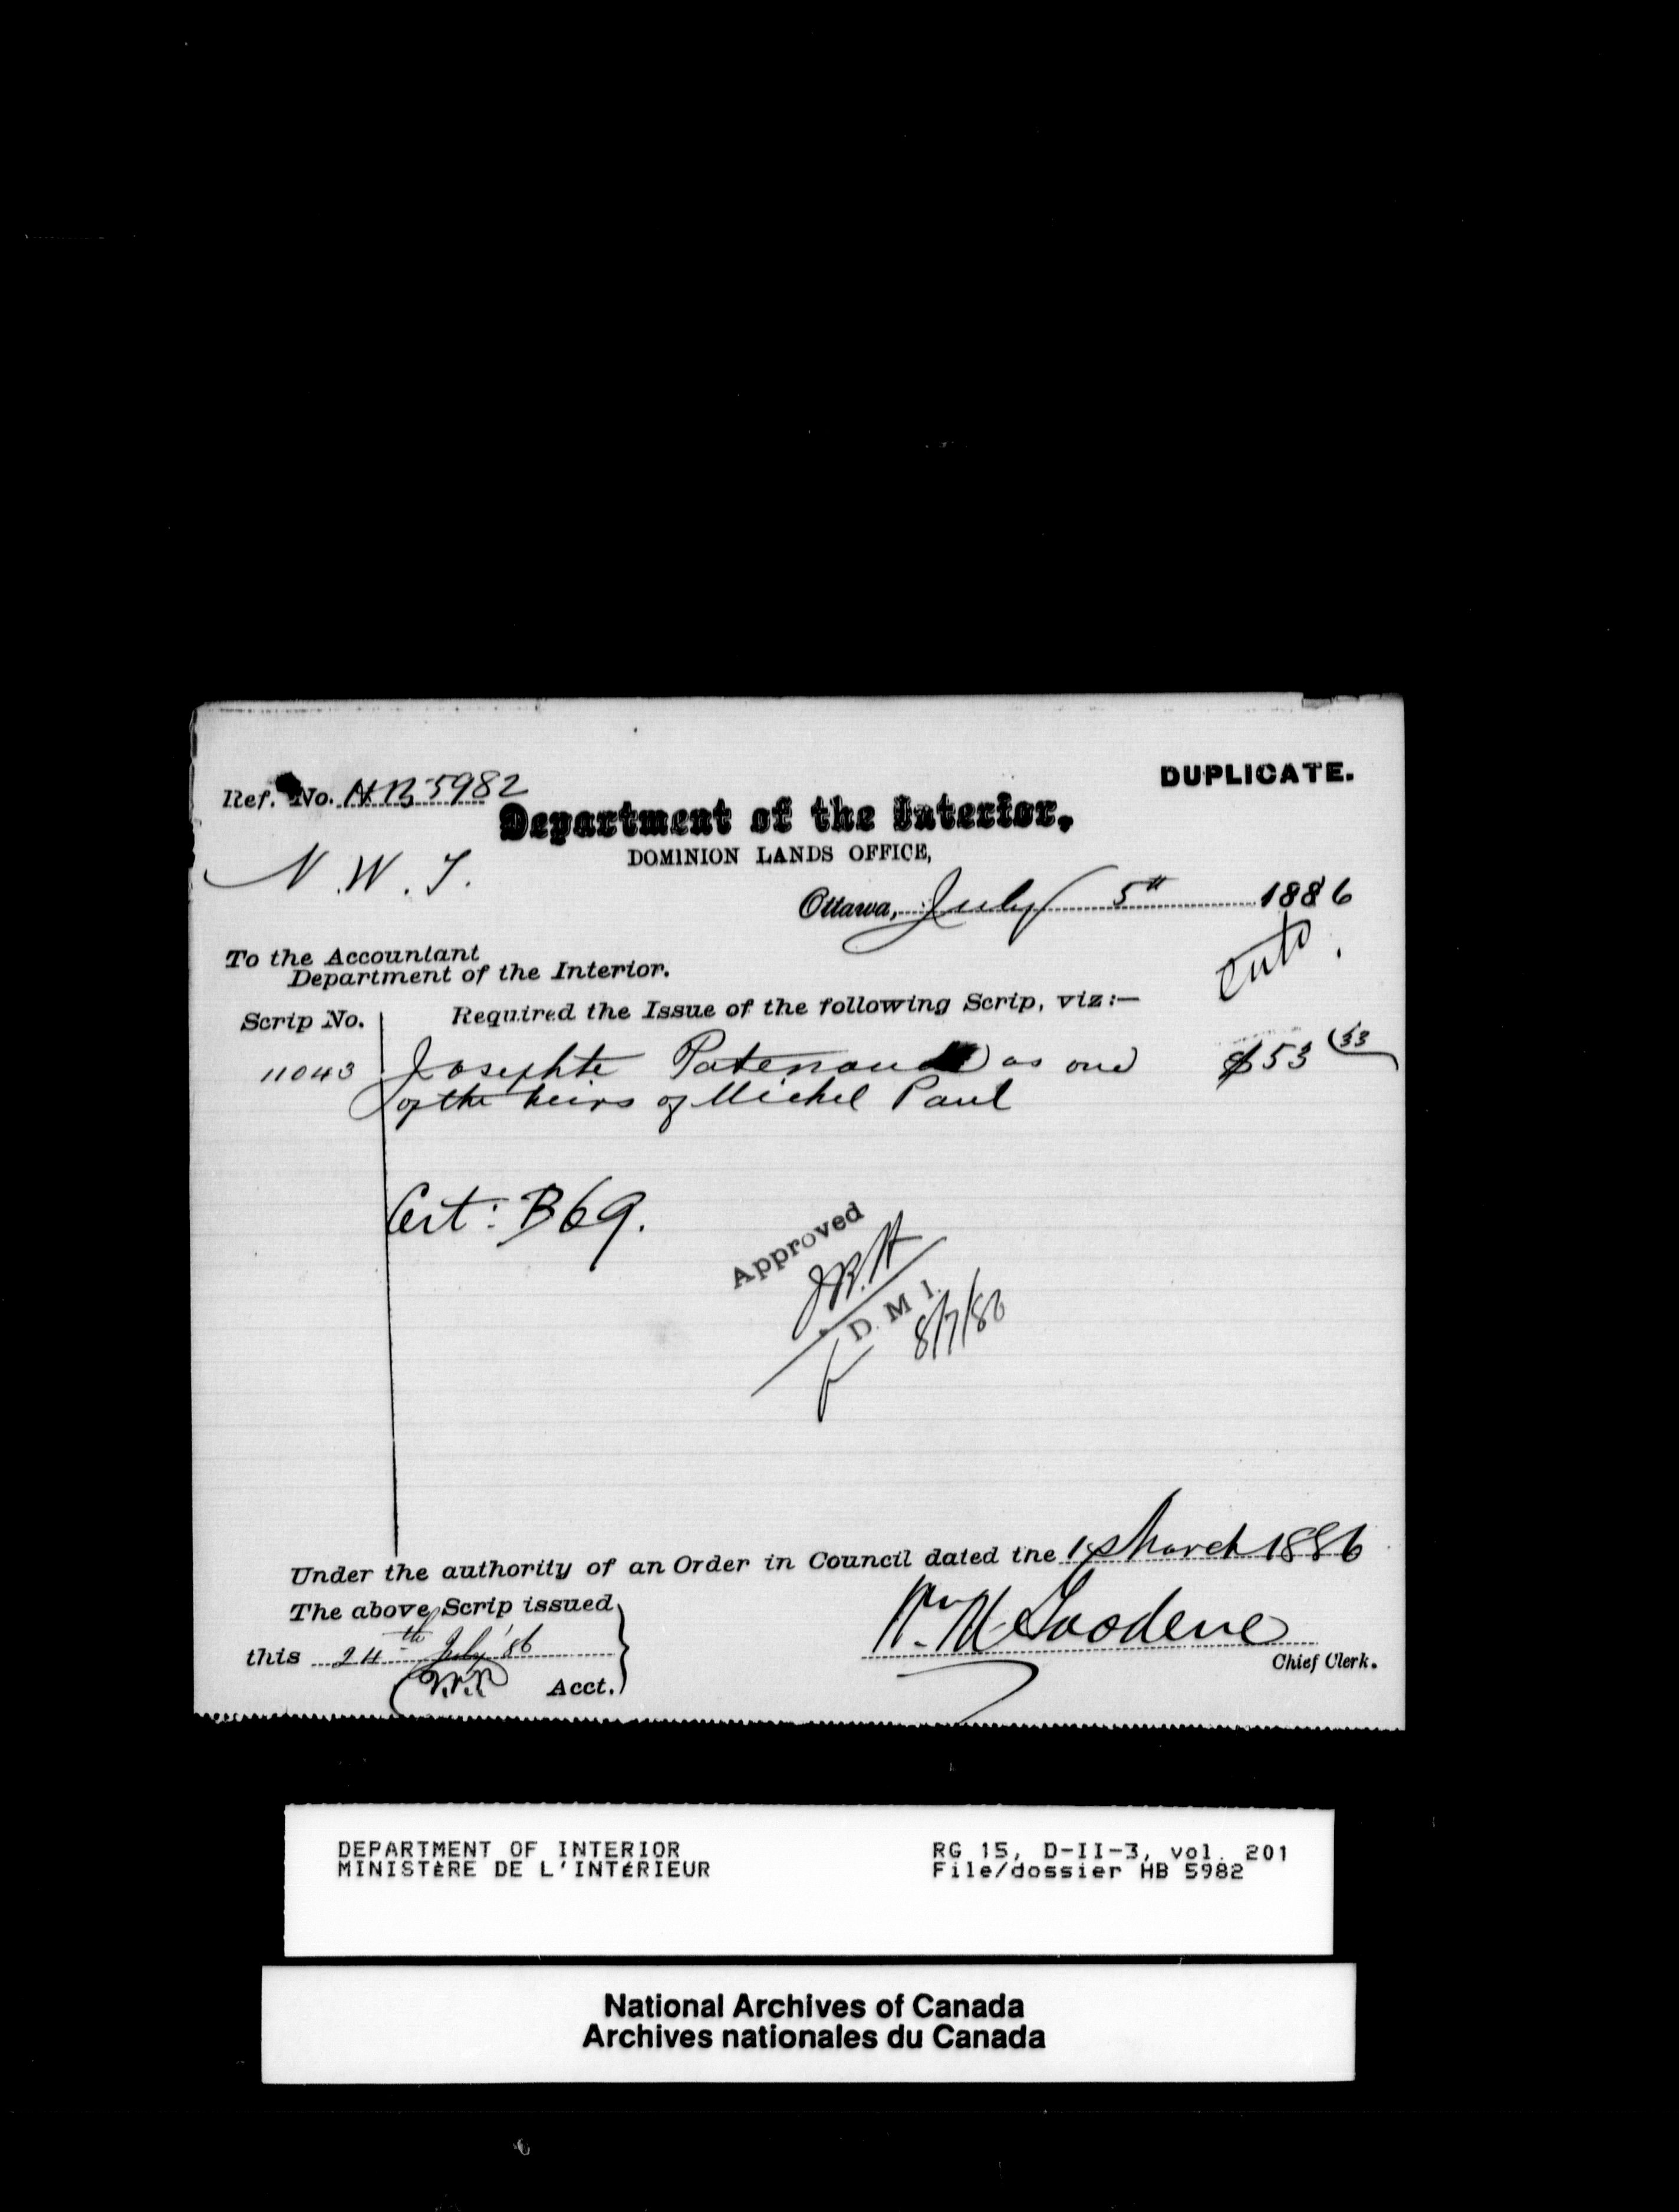 DUPLICATE.
Ref. No. HB 5982
Department of the Interior,
DOMINION LANDS OFFICE,
N. W. T.
Ottawa, July 5th 1886
To the Accountant
Department of the Interior.
Scrip No. Required the Issue of the following Scrip, viz:—
11043 Josephte Patenaude as one $53 33
of the heirs of Michel Paul
Cert: B69.
Approved
D. M. I.
8/7/86
Under the authority of an Order in Council dated the 1st March 1886
The above Scrip issued
this 24th July '86
Acct.
Chief Clerk.
DEPARTMENT OF INTERIOR
MINISTÈRE DE L'INTÉRIEUR
RG 15, D-II-3, vol. 201
File/dossier HB 5982
National Archives of Canada
Archives nationales du Canada